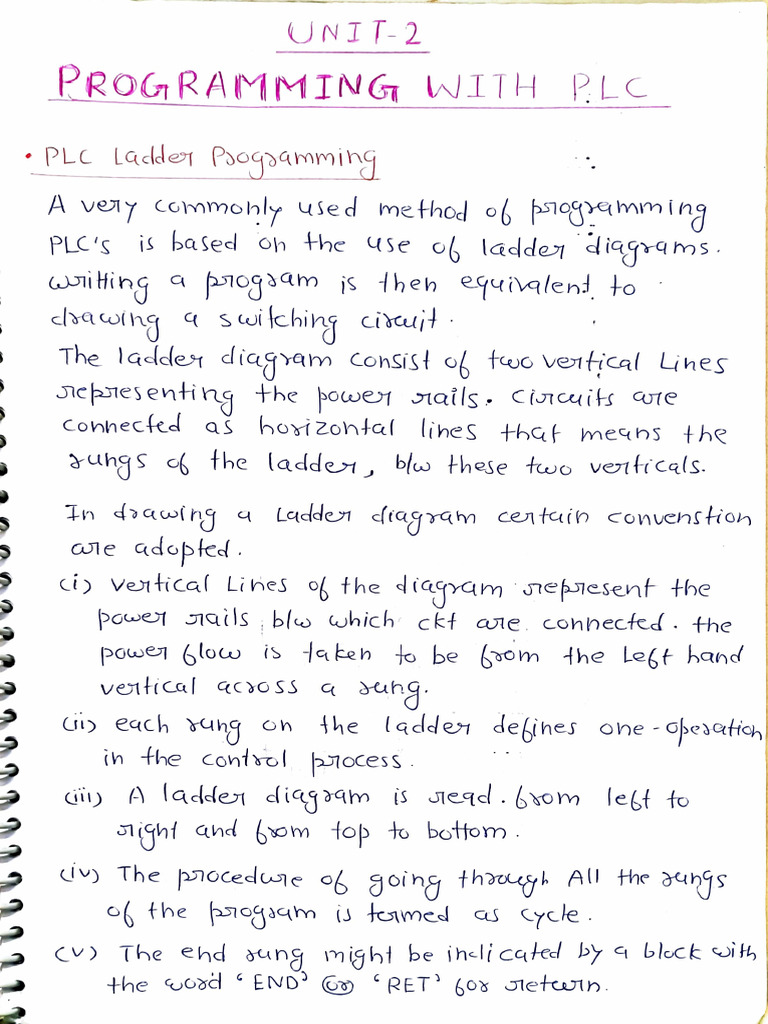 UNIT-2
PROGRAMMING WITH PLC
• PLC Ladder Programming
A very commonly used method of programming
PLC's is based on the use of ladder diagrams.
writting a program is then equivalent to
drawing a switching circuit.
The ladder diagram consist of two vertical Lines
representing the power rails. circuits are
connected as horizontal lines that means the
rungs of the ladder, b/w these two verticals.
In drawing a Ladder diagram certain convenstion
are adopted.
(i) vertical Lines of the diagram represent the
power rails b/w which ckt are connected. the
power flow is taken to be from the Left hand
vertical across a rung.
(ii) each rung on the ladder defines one-operation
in the control process.
(iii) A ladder diagram is read. from left to
right and from top to bottom.
(iv) The procedure of going through All the rungs
of the program is termed as cycle.
(v) The end rung might be indicated by a block with
the word 'END' or 'RET' for return.